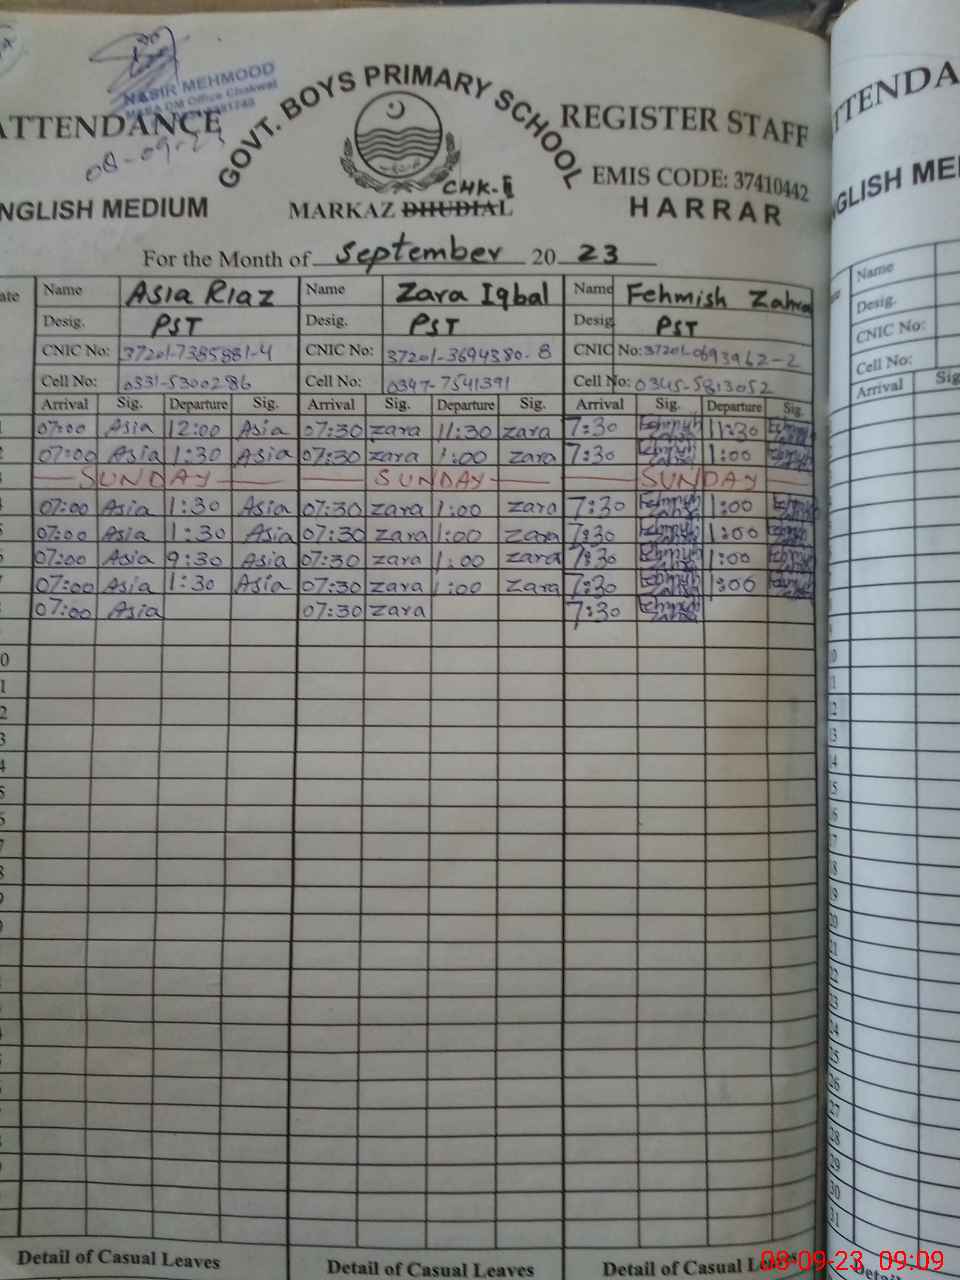 NASIR MEHMOOD
ATTENDANCE
08-09-23
GOVT. BOYS PRIMARY SCHOOL
REGISTER STAFF
EMIS CODE: 37410442
NGLISH MEDIUM
CHK-II
MARKAZ DHUDIAL
HARRAR
For the Month of September 20 23
ate Name Asia Riaz Name Zara Iqbal Name Fehmish Zahra
Desig. PST Desig. PST Desig. PST
CNIC No: 37201-7385881-4 CNIC No: 37201-3694380-8 CNIC No: 37201-0693962-2
Cell No: 0331-5300286 Cell No: 0347-7541391 Cell No: 0345-5813052
Arrival Sig. Departure Sig. Arrival Sig. Departure Sig. Arrival Sig. Departure Sig.
07:00 Asia 12:00 Asia 07:30 zara 11:30 zara 7:30 11:30
07:00 Asia 1:30 Asia 07:30 zara 1:00 zara 7:30 1:00
SUNDAY SUNDAY SUNDAY
07:00 Asia 1:30 Asia 07:30 zara 1:00 zara 7:30 1:00
07:00 Asia 1:30 Asia 07:30 zara 1:00 zara 7:30 1:00
07:00 Asia 9:30 Asia 07:30 zara 1:00 zara 7:30 1:00
07:00 Asia 1:30 Asia 07:30 zara 1:00 zara 7:30 1:00
07:00 Asia 07:30 zara 7:30
Detail of Casual Leaves Detail of Casual Leaves Detail of Casual Leaves
TTENDA
NGLISH ME
Name
Desig.
CNIC No:
Cell No:
Arrival Sig
10
11
12
13
14
15
16
17
18
19
20
21
22
23
24
25
26
27
28
29
30
31
08-09-23 09:09